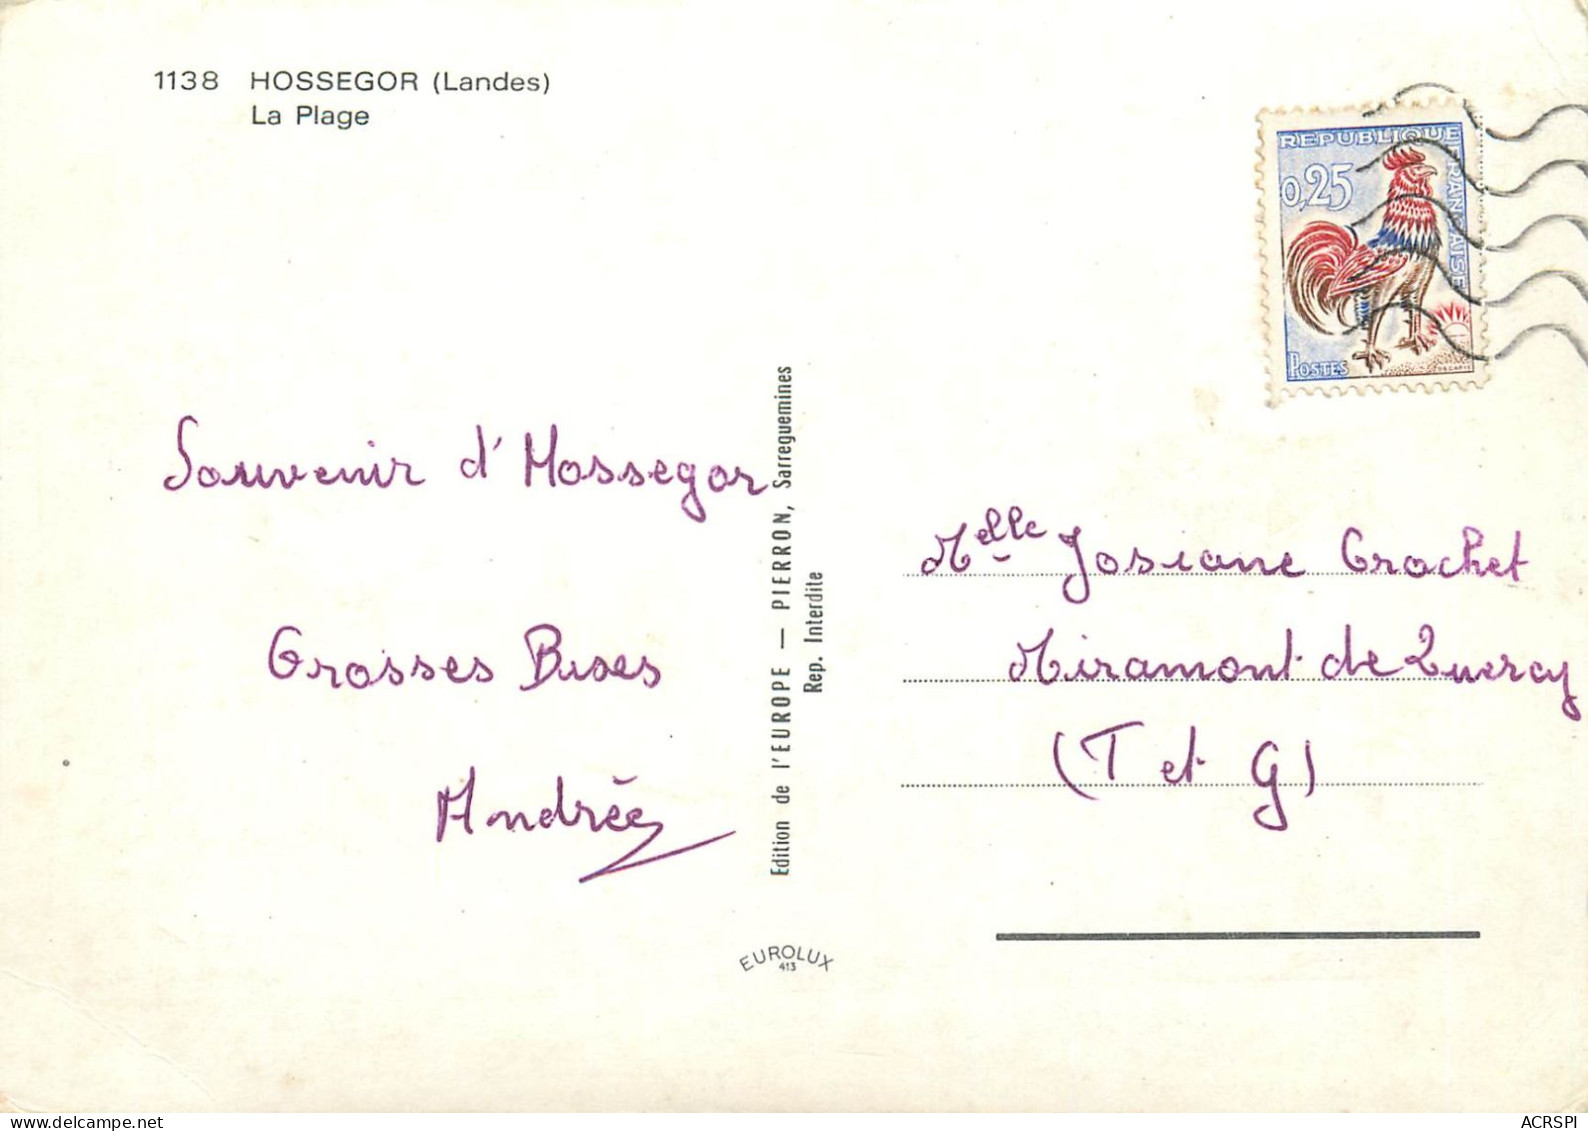 1138 HOSSEGOR (Landes)
La Plage
REPUBLIQUE FRANÇAISE
0,25
POSTES
Souvenir d'Hossegor
Grosses Bises
Andrée
Edition de l'EUROPE — PIERRON, Sarreguemines
Rep. Interdite
EUROLUX
413
Melle Josiane Crochet
Miramont de Quercy
(T et G)
ACRSPI